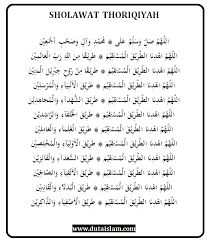 SHOLAWAT THORIQIYAH
اَللّٰهُمَّ صَلِّ وَسَلِّمْ عَلٰى * مُحَمَّدٍ وَآلٍ وَصَحْبٍ اَجْمَعِيْنَ
اَللّٰهُمَّ اهْدِنَا الطَّرِيْقَ الْمُسْتَقِيْمَ * طَرِيْقًا مِنَ اللهِ رَبِّ الْعَالَمِيْنَ
اَللّٰهُمَّ اهْدِنَا الطَّرِيْقَ الْمُسْتَقِيْمَ * طَرِيْقًا مِنْ رُوْحِ جِبْرِيْلَ الْاَمِيْنَ
اَللّٰهُمَّ اهْدِنَا الطَّرِيْقَ الْمُسْتَقِيْمَ * طَرِيْقَ الْاَنْبِيَاءِ وَالْمُرْسَلِيْنَ
اَللّٰهُمَّ اهْدِنَا الطَّرِيْقَ الْمُسْتَقِيْمَ * طَرِيْقَ الشُّهَدَاءِ وَالْمُجَاهِدِيْنَ
اَللّٰهُمَّ اهْدِنَا الطَّرِيْقَ الْمُسْتَقِيْمَ * طَرِيْقَ الْخُلَفَاءِ الرَّاشِدِيْنَ
اَللّٰهُمَّ اهْدِنَا الطَّرِيْقَ الْمُسْتَقِيْمَ * طَرِيْقَ الْعُلَمَاءِ وَالْعَامِلِيْنَ
اَللّٰهُمَّ اهْدِنَا الطَّرِيْقَ الْمُسْتَقِيْمَ * طَرِيْقَ الْاَوْلِيَاءِ وَالْمُخْلِصِيْنَ
اَللّٰهُمَّ اهْدِنَا الطَّرِيْقَ الْمُسْتَقِيْمَ * طَرِيْقَ السُّعَدَاءِ وَالْفَائِزِيْنَ
اَللّٰهُمَّ اهْدِنَا الطَّرِيْقَ الْمُسْتَقِيْمَ * طَرِيْقَ الْاَتْقِيَاءِ وَالصَّالِحِيْنَ
اَللّٰهُمَّ اهْدِنَا الطَّرِيْقَ الْمُسْتَقِيْمَ * طَرِيْقَ الْبُدَلَاءِ وَالْقَانِتِيْنَ
اَللّٰهُمَّ اهْدِنَا الطَّرِيْقَ الْمُسْتَقِيْمَ * طَرِيْقَ الْاَصْفِيَاءِ وَالذَّاكِرِيْنَ
www.dutaislam.com